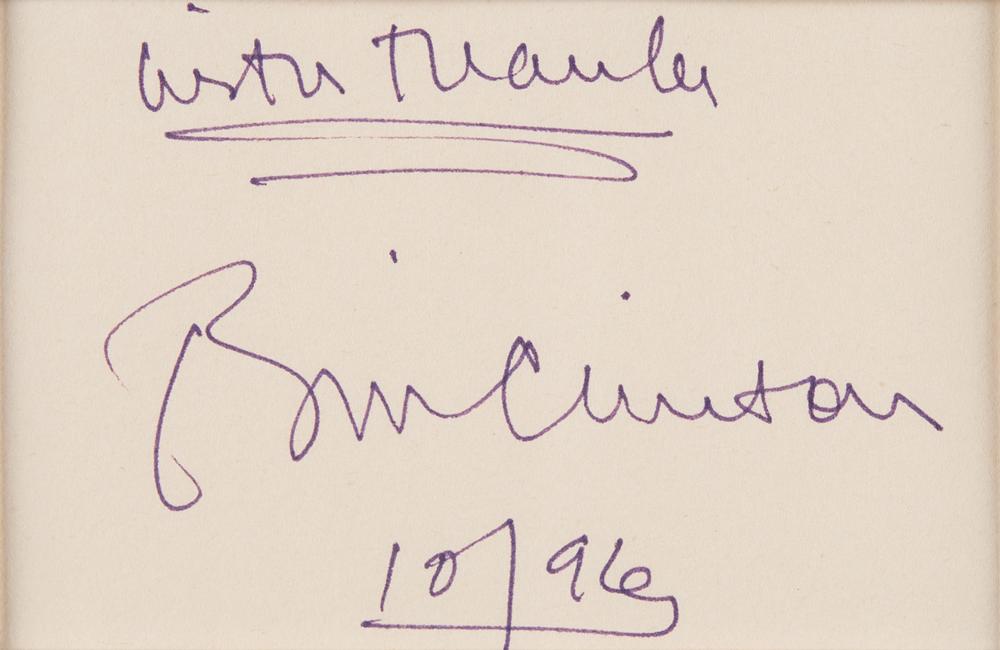 with thanks
Bill Clinton
10/96